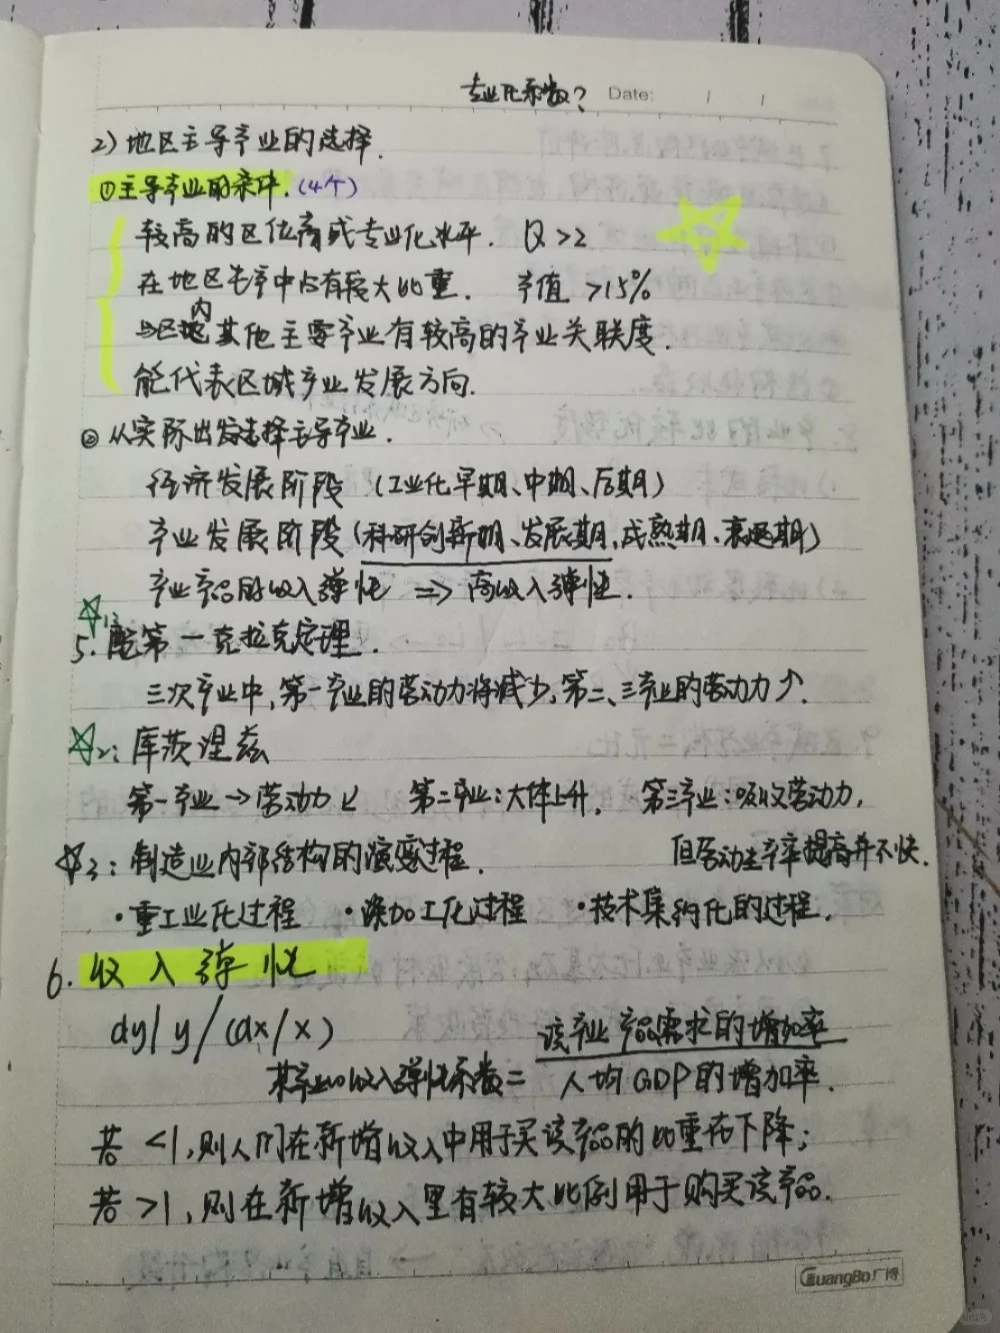 专业化系数? Date: / /
2) 地区主导产业的选择.
①主导产业的条件.(4个)
较高的区位商或专业化水平. Q >2
在地区生产中占有较大比重. 产值 >15%
与区域内其他主要产业有较高的产业关联度.
能代表区域产业发展方向.
② 从实际出发选择主导产业.
经济发展阶段 (工业化早期、中期、后期)
产业发展阶段 (科研创新期、发展期,成熟期、衰退期)
产业产品的收入弹性 => 高收入弹性.
☆1:
5. 配第一克拉克定理.
三次产业中,第一产业的劳动力将减少,第二、三产业的劳动力↑.
☆2: 库茨涅兹
第一产业→劳动力↙ 第二产业:大体上升. 第三产业:吸收劳动力,
但劳动生产率提高并不快.
☆3: 制造业内部结构的演变过程.
·重工业化过程 ·深加工化过程 ·技术集约化的过程.
6. 收入弹性
dy/y/(dx/x) 该产业产品需求的增加率
某产业的收入弹性系数= 人均GDP的增加率.
若 <1,则人们在新增收入中用于买该产品的比重在下降;
若 >1,则在新增收入里有较大比例用于购买该产品.
GuangBo广博